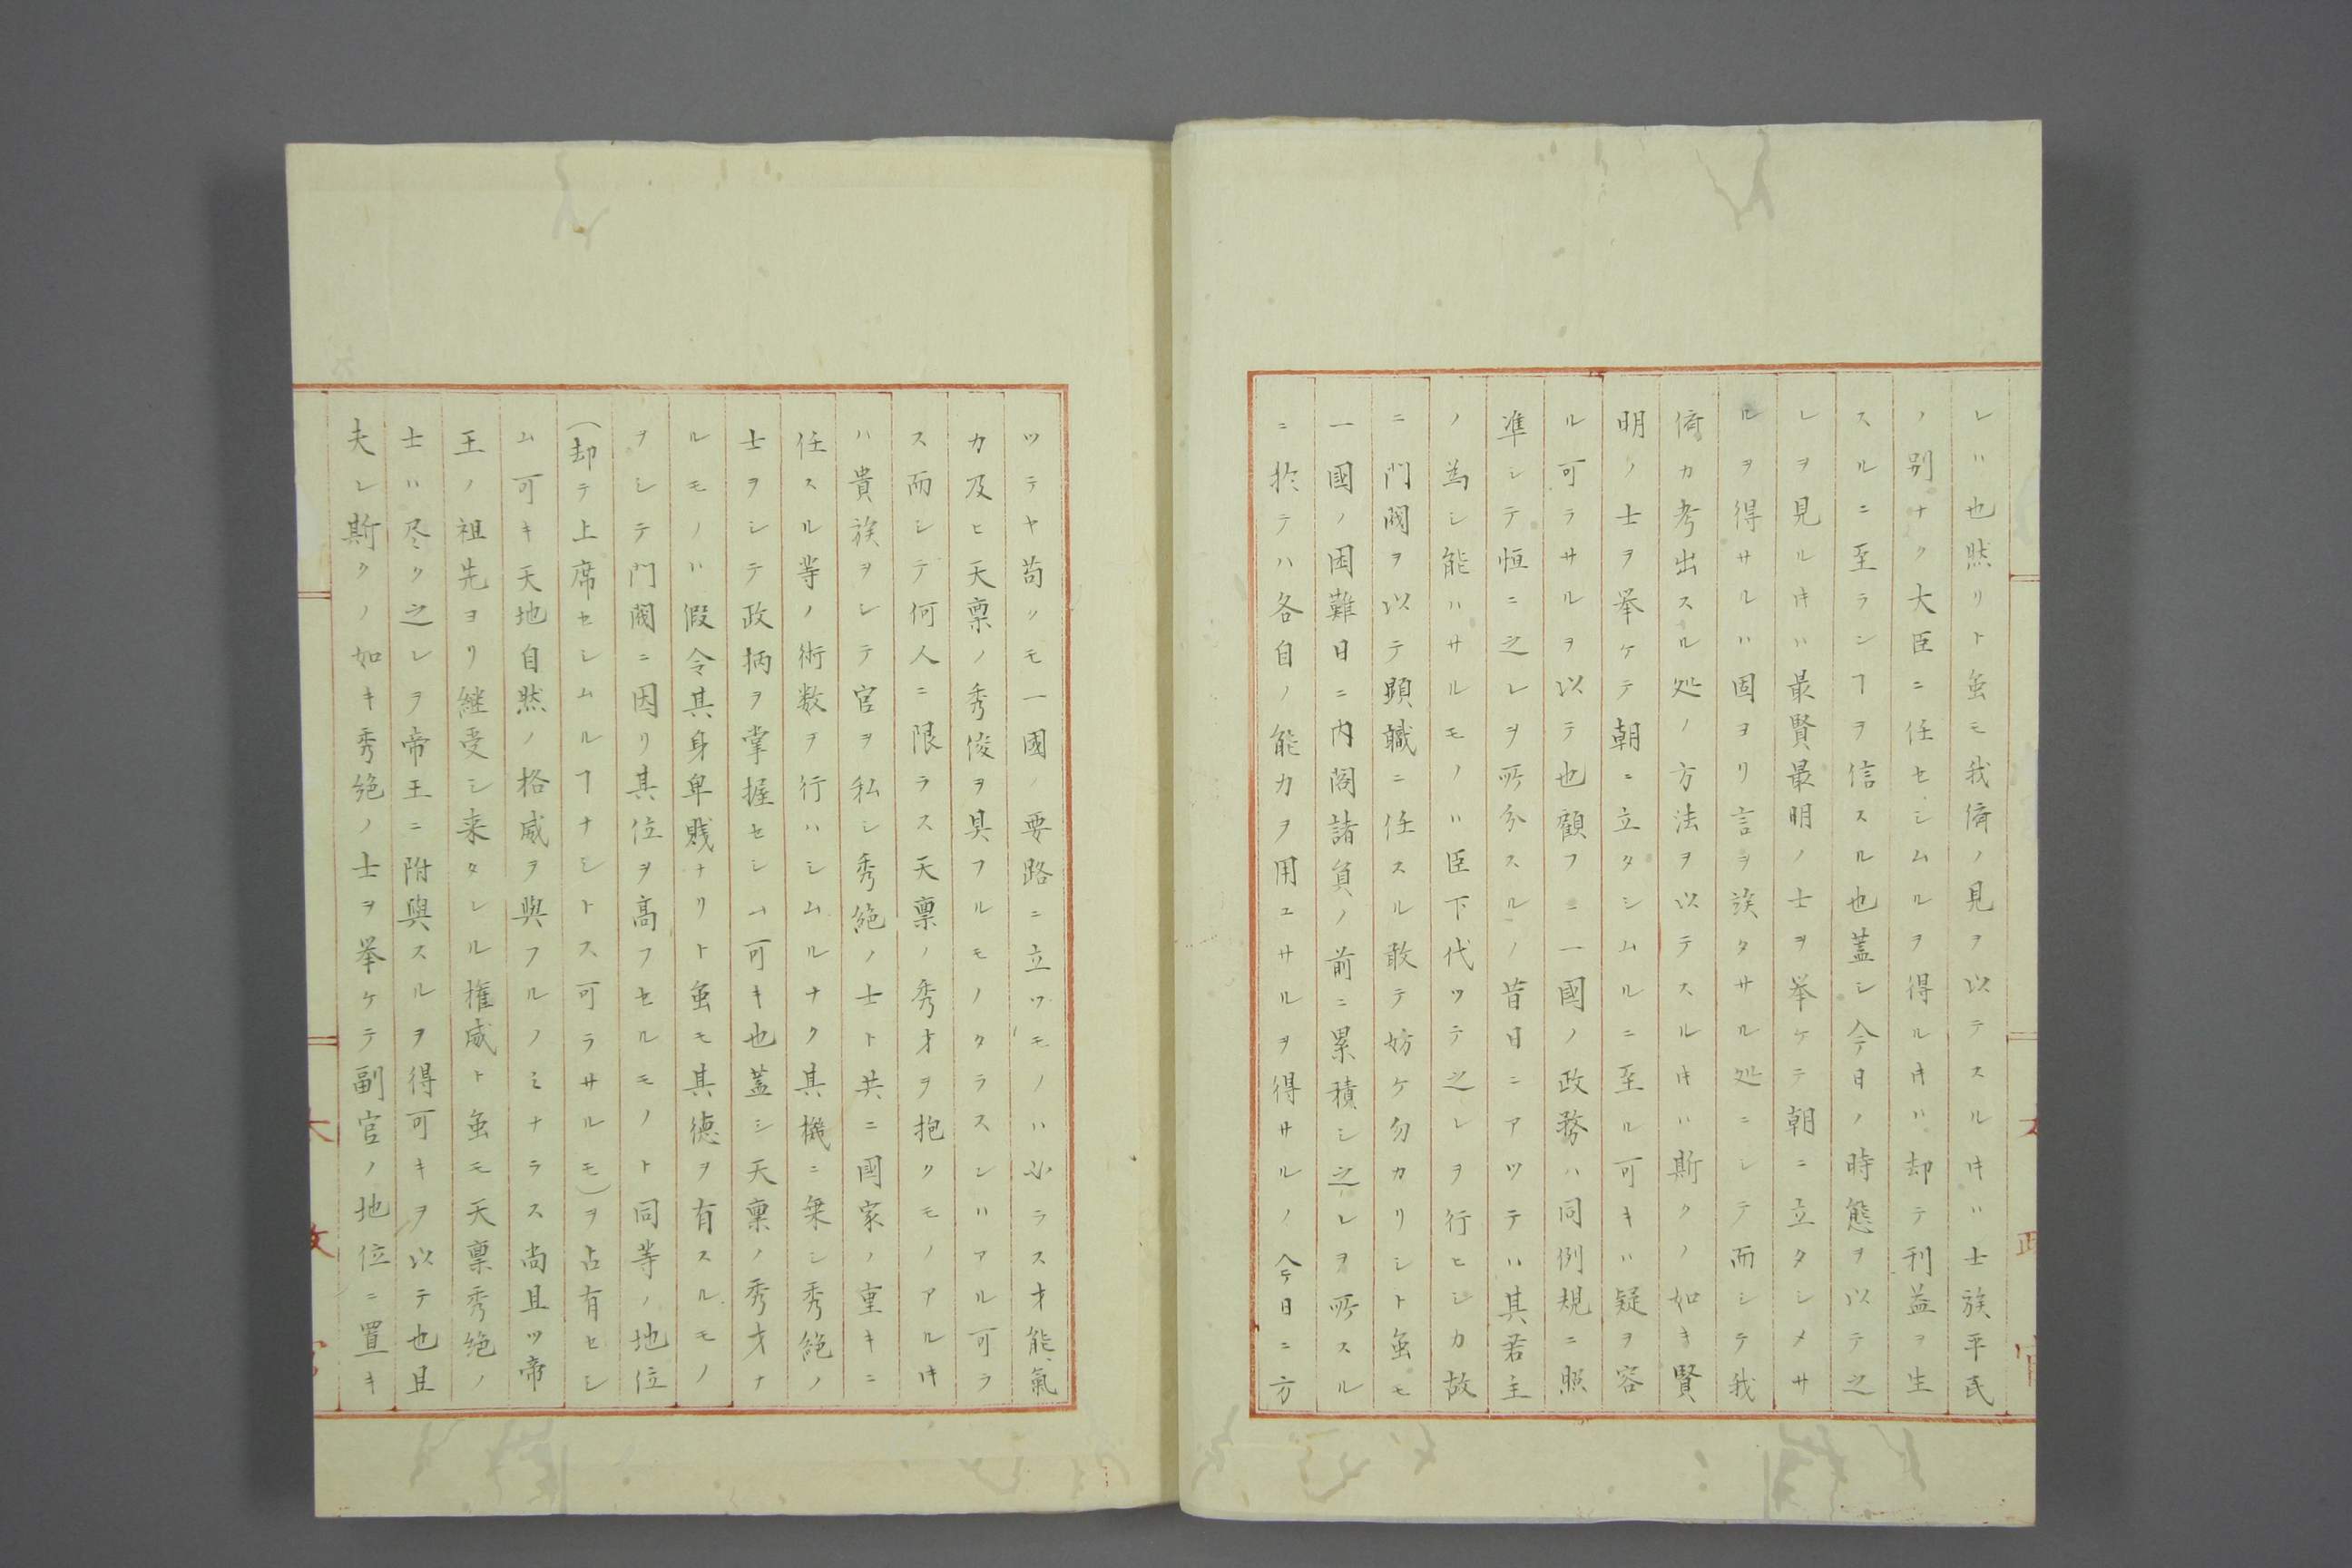 レハ也然リト虽モ我儕ノ見ヲ以テスルㇳキハ士族平民
ノ別ナク大臣ニ任セシムルヲ得ルㇳキハ却テ利益ヲ生
スルニ至ランヿヲ信スル也蓋シ今日ノ時態ヲ以テ之
レヲ見ルㇳキハ最賢最明ノ士ヲ挙ケテ朝ニ立タシメサ
ルヲ得サルハ固ヨリ言ヲ俟タサル処ニシテ而シテ我
儕カ考出スル処ノ方法ヲ以テスルㇳキハ斯クノ如キ賢
明ノ士ヲ挙ケテ朝ニ立タシムルニ至ル可キハ疑ヲ容
ル可ラサルヲ以テ也顧フニ一國ノ政務ハ同例規ニ照
準シテ恒ニ之レヲ所分スルノ昔日ニアツテハ其若主
ノ為シ能ハサルモノハ臣下代ツテ之レヲ行ヒシカ故
ニ門閥ヲ以テ顕職ニ任スル敢テ妨ケ勿カリシト虽モ
一國ノ困難日ニ内閣諸員ノ前ニ累積シ之レヲ所スル
ニ於テハ各自ノ能力ヲ用ユサルヲ得サルノ今日ニ方
太政官
ツテヤ苟クモ一國ノ要路ニ立ツモノハ必ラス才能氣
力及ヒ天禀ノ秀俊ヲ具フルモノタラスンハアル可ラ
ス而シテ何人ニ限ラス天禀ノ秀才ヲ抱クモノアルㇳキ
ハ貴族ヲシテ官ヲ私シ秀絶ノ士ト共ニ國家ノ重キニ
任スル等ノ術数ヲ行ハシムルナク其機ニ乗シ秀絶ノ
士ヲシテ政柄ヲ掌握セシム可キ也蓋シ天禀ノ秀才ナ
ルモノハ假令其身卑賎ナリト虽モ其徳ヲ有スルモノ
ヲシテ門閥ニ因リ其位ヲ高フセルモノト同等ノ地位
(却テ上席セシムルヿナシトス可ラサルモ)ヲ占有セシ
ム可キ天地自然ノ格威ヲ與フルノミナラス尚且ツ帝
王ノ祖先ヨリ継受シ来タレル権威ト虽モ天禀秀絶ノ
士ハ尽ク之レヲ帝王ニ附與スルヲ得可キヲ以テ也且
夫レ斯クノ如キ秀絶ノ士ヲ挙ケテ副官ノ地位ニ置キ
太政官